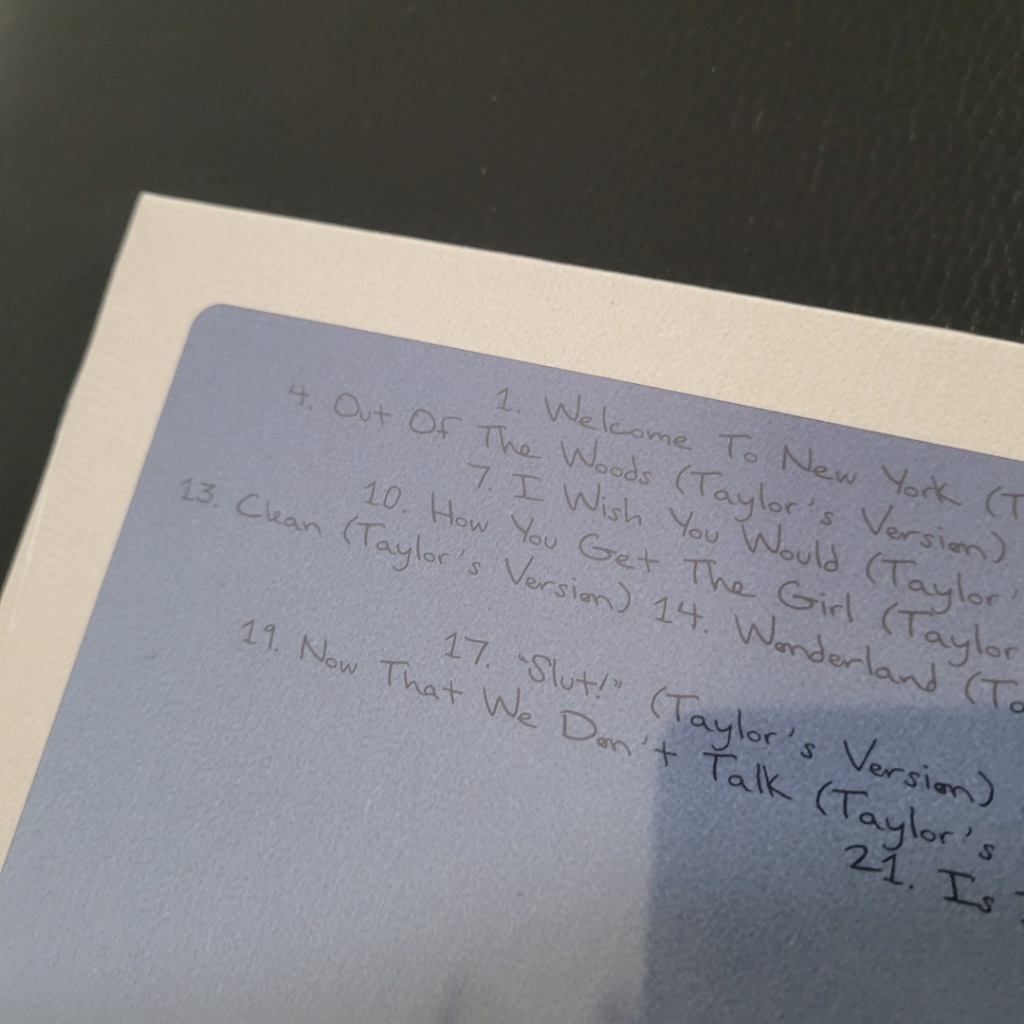 1. Welcome To New York (T
4. Out Of The Woods (Taylor's Version)
7. I Wish You Would (Taylor'
10. How You Get The Girl (Taylor
13. Clean (Taylor's Version) 14. Wonderland (Ta
17. "Slut!" (Taylor's Version)
19. Now That We Don't Talk (Taylor's
21. Is